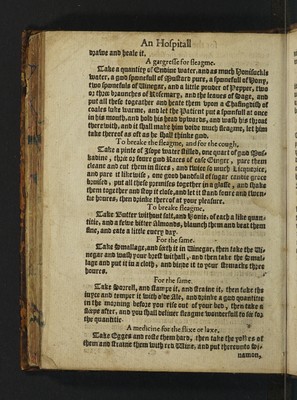 An Hospitall
drawe and heale it.
A gargresse for fleagme.
Take a quantity of Endiue water, and as much Honisockls
water, a good spoonefull of Mustard pure, a spoonefull of Hony,
two spoonefuls of Vinegar, and a little powder of Pepper, two
or thré braunches of Rosemary, and the leaues of Sage, and
put all these together and heate them vpon a Chafingdish of
coales luke warme, and let the Patient put a spoonfull at once
in his mouth, and hold his head vpwards, and wash his throat
therewith, and it shall make him voide much fleagme, let him
take thereof as oft as he shall thinke good.
To breake the fleagme, and for the cough.
Take a pinte of Isope water stilled, one quart of good Mus-
kadine, thrée or foure good Races of Ginger, pare them
cleane and cut them in slices, and twise so much Licquorice,
and pare it likewise, one good handfull of sugar cantie groce
brused, put all these premises together in a glasse, and shake
them together and stop it close, and let it stand foure and twen-
tie houres, then drinke therof at your pleasure.
To breake fleagme.
Take Butter without salt, and Honie, of each a like quan-
titie, and a fewe bitter Almonds, blaunch them and beat them
fine, and eate a little euery day.
For the same.
Take Smallage, and seeth it in Vinegar, then take the Vi-
negar and wash your brest withall, and then take the Smal-
lage and put it in a cloth, and binde it to your stomacke three
houres.
For the same.
Take Sorell, and stampe it, and straine it, then take the
iuyce and temper it with olde Ale, and drinke a good quantitie
in the morning before you rise out of your bed, then take a
sléepe after, and you shall deliuer fleagme wonderfull to sée for
the quantitie
A medicine for the flixe or laxe.
Take Egges and roste them hard, then take the yolkes of
them and straine them with red Wine, and put thereunto Si-
namon,